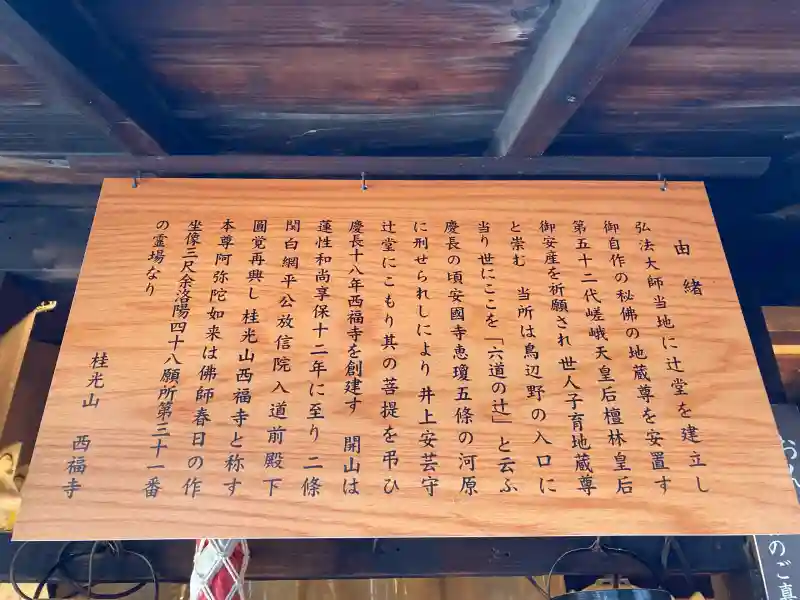 由緒
弘法大師当地に辻堂を建立し
御自作の秘佛の地蔵尊を安置す
第五十二代嵯峨天皇后檀林皇后
御安産を祈願され世人子育地蔵尊
と崇む 当所は鳥辺野の入口に
当り世にここを「六道の辻」と云ふ
慶長の頃安國寺恵瓊五條の河原
に刑せられしにより井上安芸守
辻堂にこもり其の菩提を弔ひ
慶長十八年西福寺を創建す 開山は
蓮性和尚享保十二年に至り二條
関白綱平公放信院入道前殿下
圓覚再興し桂光山西福寺と称す
本尊阿弥陀如来は佛師春日の作
坐像三尺余洛陽四十八願所第三十一番
の霊場なり
桂光山 西福寺
のご真